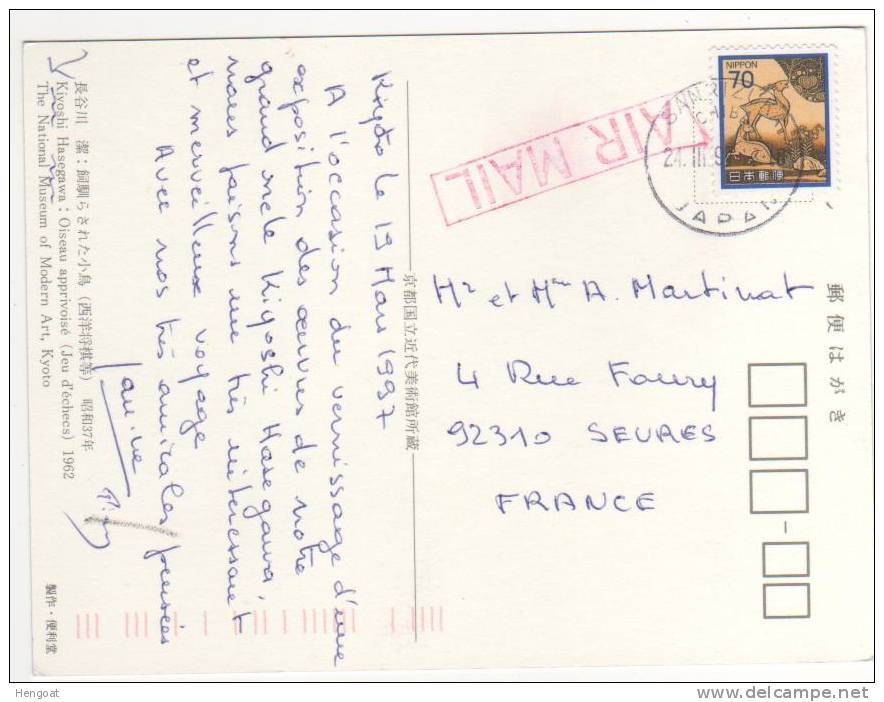 Kyoto le 19 Mars 1997
A l'occasion du vernissage d'une
exposition des œuvres de notre
grand oncle Kiyoshi Hasegawa,
nous faisons un très intéressant
et merveilleux voyage
Avec nos très amicales pensées
長谷川 潔：飼馴らされた小鳥（西洋将棋等）昭和37年
Kiyoshi Hasegawa : Oiseau apprivoisé (Jeu d'échecs) 1962
The National Museum of Modern Art, Kyoto
製作・便利堂
京都国立近代美術館所蔵
AIR MAIL
NIPPON
70
日本郵便
JAPAN
郵便はがき
Mr et Mme A. Martinat
4 Rue Foury
92310 SEVRES
FRANCE
Hengoat
delcampe.net